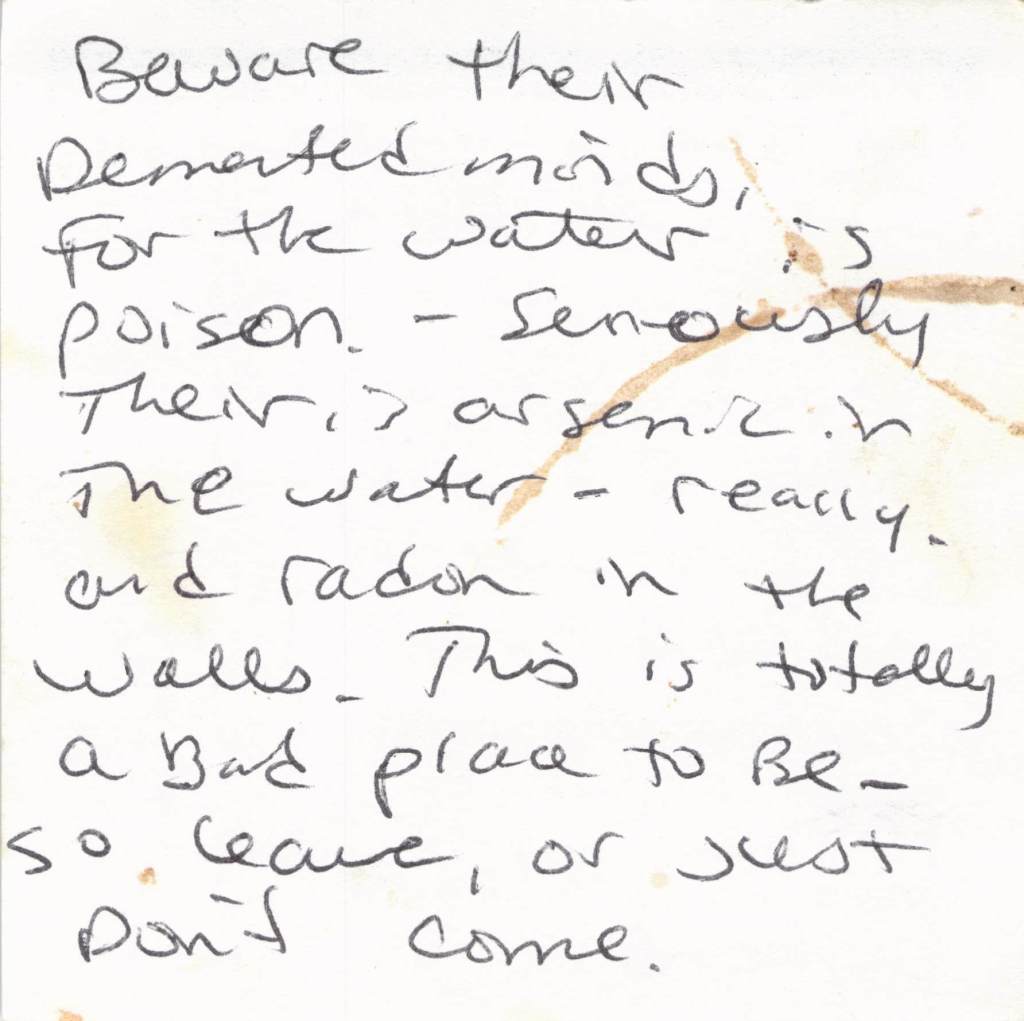 Beware their
Demented minds,
for the water is
poison. - Seriously
Their is arsenic in
The water - really.
and radon in the
walls. This is totally
a Bad place to Be -
so leave, or just
Don't come.